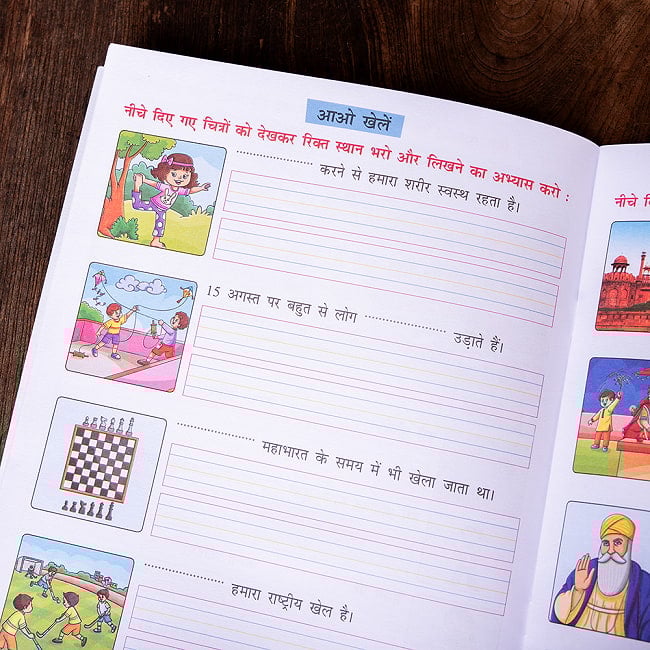 आओ खेलें
नीचे दिए गए चित्रों को देखकर रिक्त स्थान भरो और लिखने का अभ्यास करो :
.................... करने से हमारा शरीर स्वस्थ रहता है।
15 अगस्त पर बहुत से लोग .................... उड़ाते हैं।
.................... महाभारत के समय में भी खेला जाता था।
.................... हमारा राष्ट्रीय खेल है।
नीचे